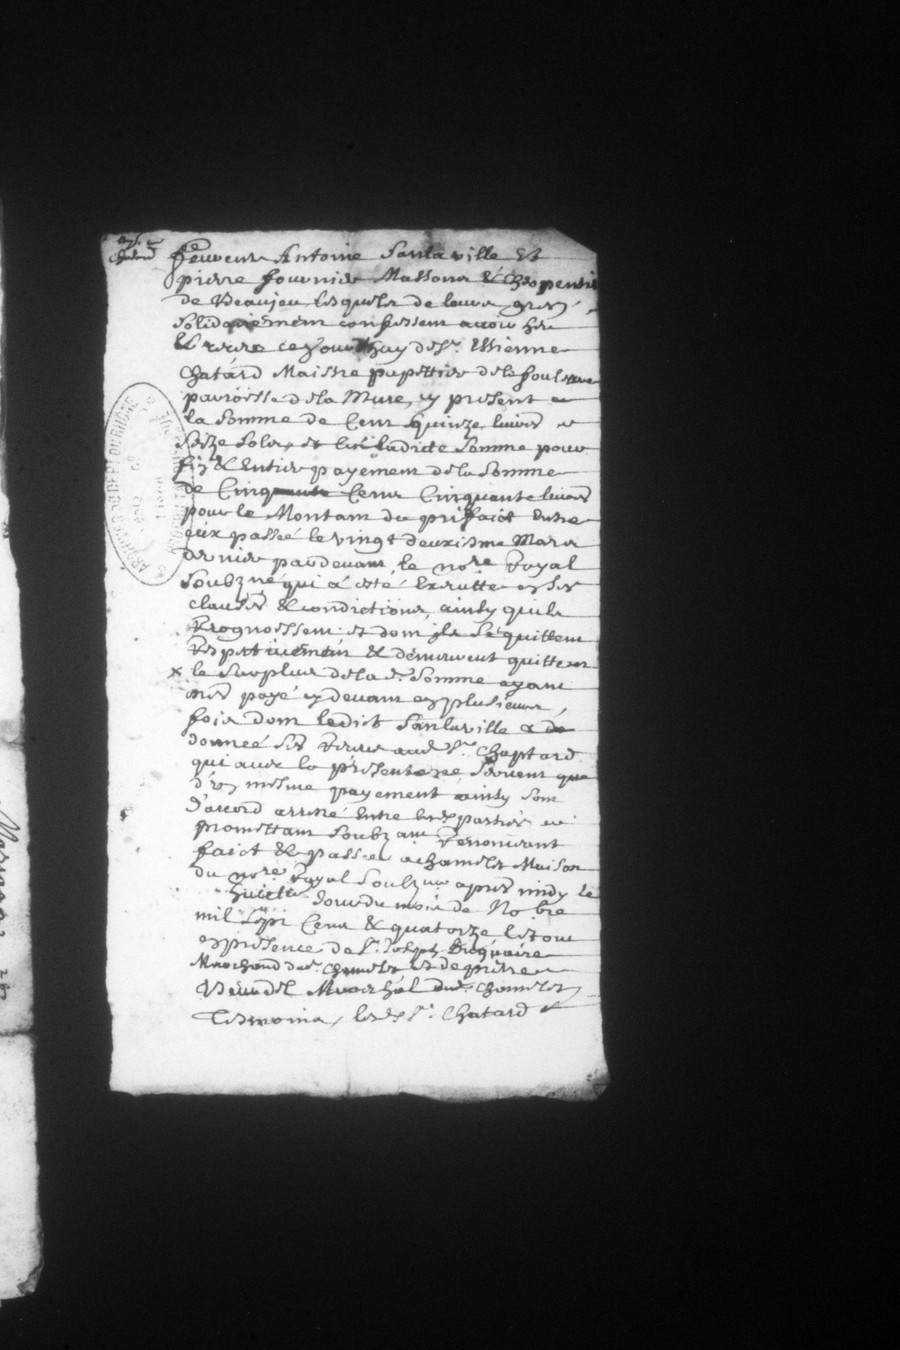 Chatard
feurent Antoine Sanlaville Et
pierre fournier Massons & Charpentiers
de Beaujeu, lesquels de leurs grez
Solidairement confessent avoir heu
& receu ce jourdhuy de Sr. Estienne
Chatard Maistre papettier dela foulliouse
parroisse dela Mure, cy present
la Somme de Cent quinze livres
seize Sols, et c'est ladicte Somme pour
fin & Entier payement dela Somme
de Cinq Cent Cinquante livres
pour le Montant du prifaict Entre
eux passé le vingt deuxiesme Mars
dernier pardevant le nore Royal
Soubzné qui à esté Executté en ses
clauses & condictions, ainsy quils
Recognoissent et dont ils Se quittent
Respectivement &
× le Surplus dela d. Somme ayant
esté payé cy devant en plusieurs
fois dont ledict Sanlaville a
donneé ses Receus aud Sr. Chaptard
qui avec la presente ne Servent que
d'un mesme payement ainsy Sont
d'accord arrivé Entre lesd parties
promettant Soubz ant Renonceant
faict & passé a chamelet Maison
du nore Royal Soubzné apres midy le
huict Jour du mois de No bre
mil Sept Cent & quatorze
en presence de Sr. Joseph
Marchand dud. Chamelet et de pierre
Marechal dud. Chamelet
Tesmoins, lesd Sr. Chatard
ARCHIVES DU DEPT DU RHONE